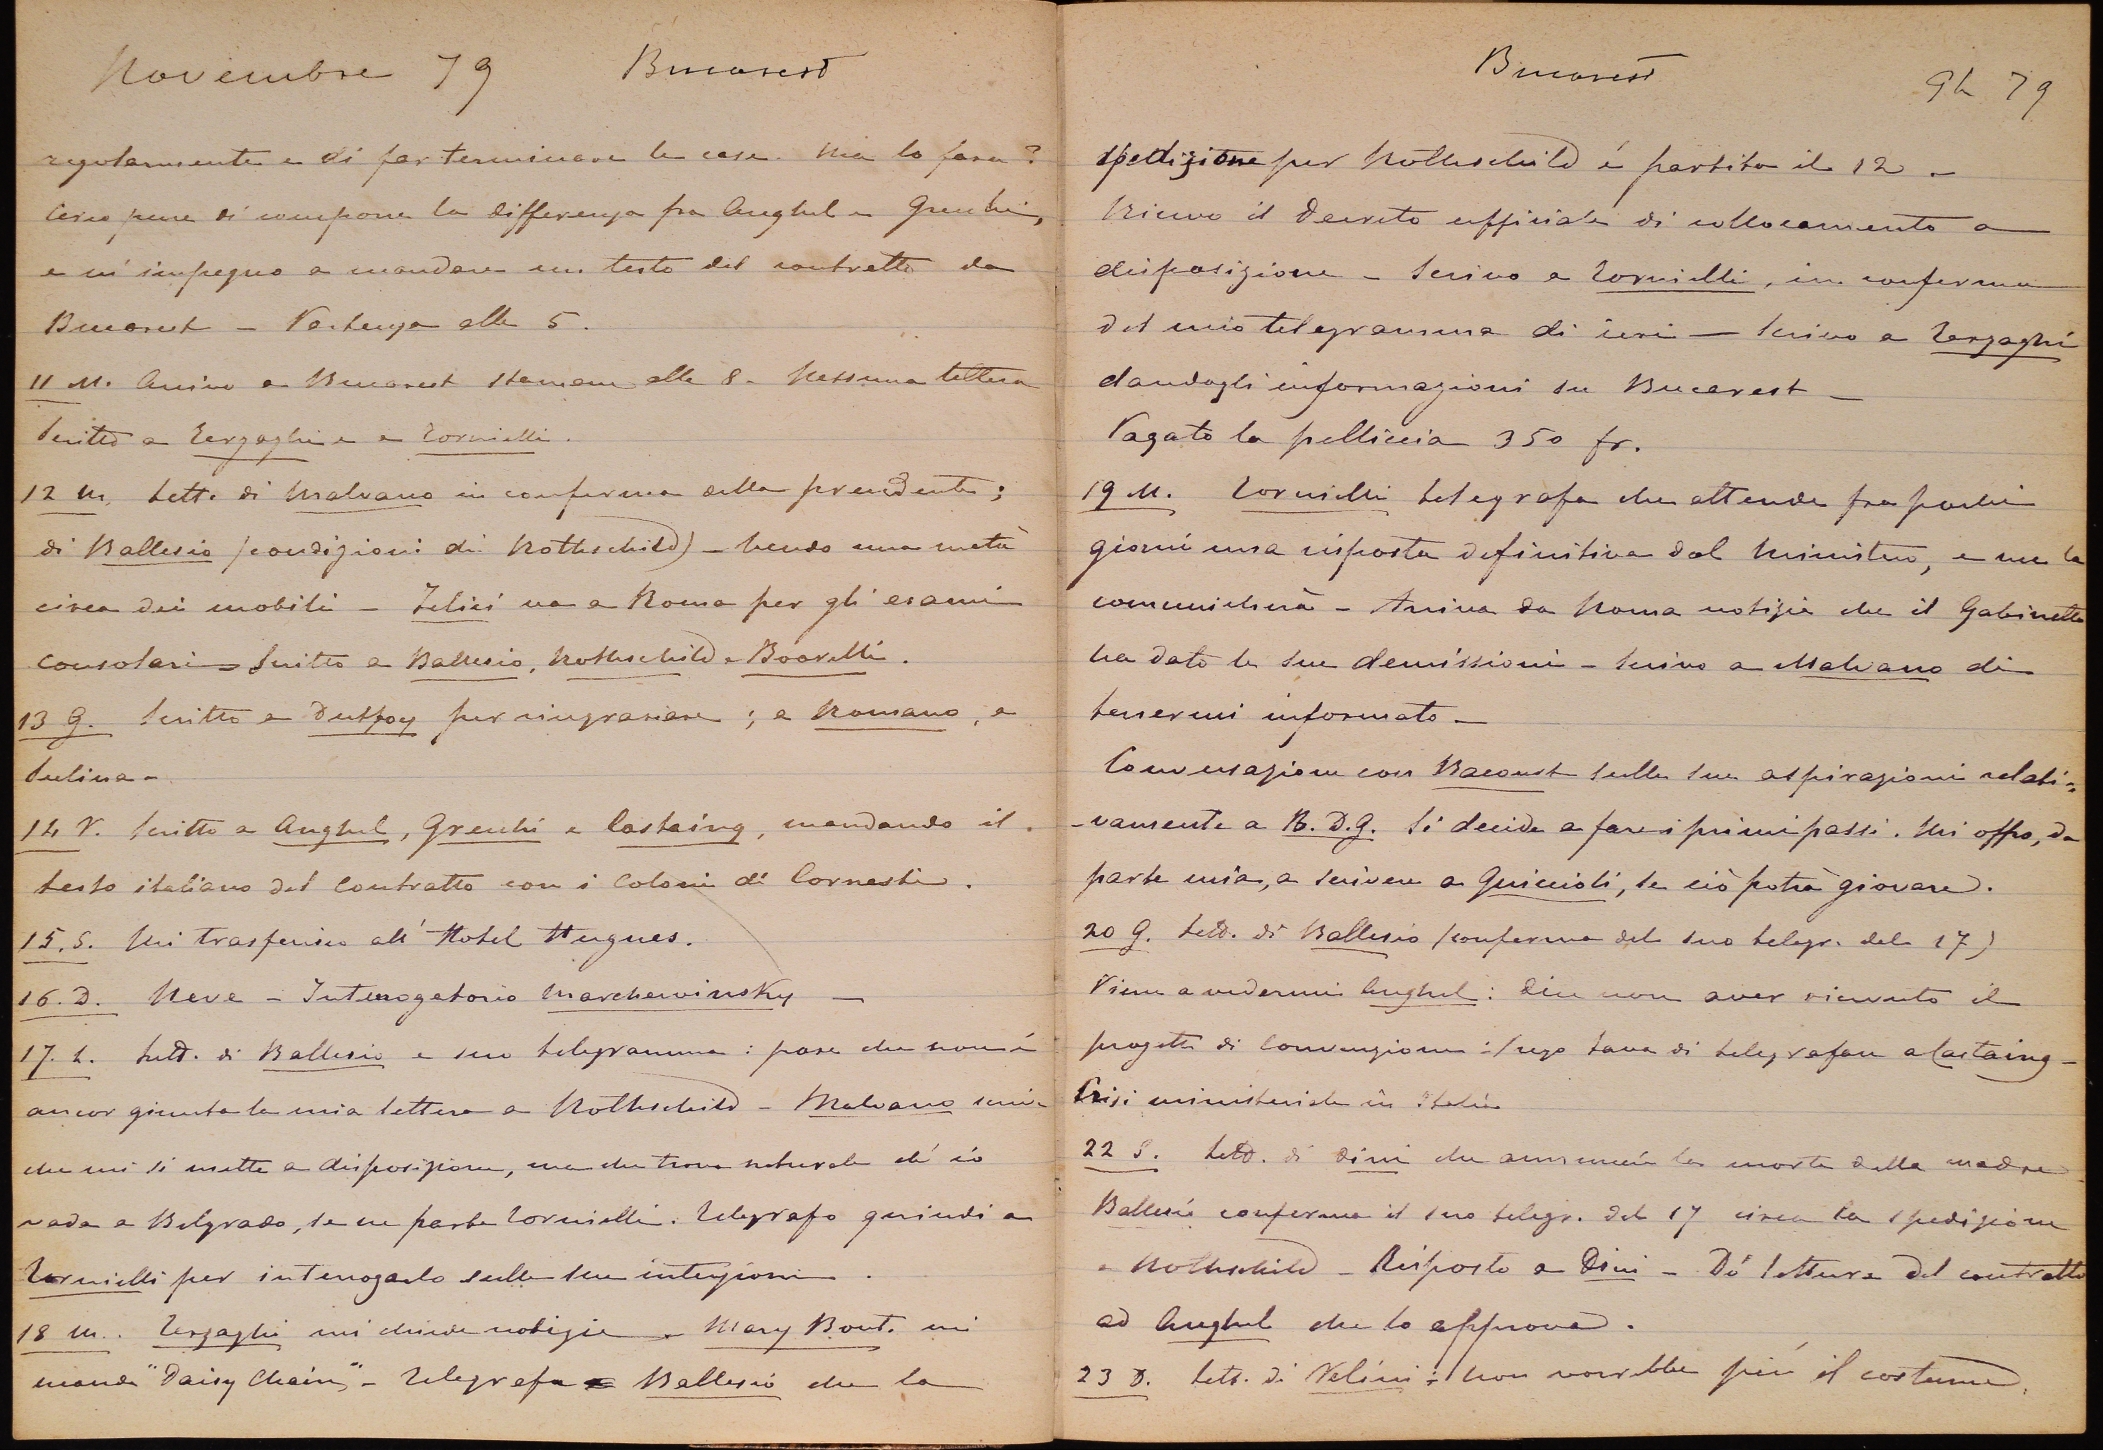 Novembre 79 Bucarest
regolarmente e di far terminare le case. Ma lo farà?
Cerco pure di comporre la differenza fra Anghel e Grecchi,
e m'impegno a mandare un testo del contratto da
Bucarest – Partenza alle 5.
11 M. Arrivo a Bucarest stamane alle 8. Nessuna lettera
Scritto a Terzaghi e a Tornielli.
12 M. Lett. di Malvano in conferma della precedente;
di Ballesio (condizioni di Rothschild) – Vendo una metà
circa dei mobili – Felici va a Roma per gli esami
consolari – Scritto a Ballesio, Rothschild e Borelli.
13 G. Scritto a Dutfoy per ringraziare; a Romano, a
Sulina –
14 V. Scritto a Anghel, Grecchi e Castaing, mandando il
testo italiano del Contratto con i Coloni di Cornesti.
15. S. Mi trasferisco all'Hotel Hugues.
16. D. Neve – Interrogatorio Marchewinsky –
17. L. Lett. di Ballesio e suo telegramma: pare che non è
ancor giunta la mia lettera a Rothschild – Malvano scrive
che mi si mette a disposizione, ma che trova naturale ch'io
vada a Belgrado, se ne parte Tornielli. Telegrafo quindi a
Tornielli per interrogarlo sulle sue intenzioni.
18 M. Terzaghi mi chiede notizie – Mary Bout. mi
manda "Daisy Chain" – Telegrafa Ballesio che la
Bucarest 9b 79
spedizione per Rothschild è partita il 12 –
Ricevo il decreto ufficiale di collocamento a
disposizione – Scrivo a Tornielli, in conferma
del mio telegramma di ieri – Scrivo a Terzaghi
dandogli informazioni su Bucarest –
Pagato la pelliccia 350 fr.
19 M. Tornielli telegrafa che attende fra pochi
giorni una risposta definitiva dal Ministero, e me la
comunicherà – Arriva da Roma notizia che il Gabinetto
ha dato le sue demissioni – Scrivo a Malvano di
tenermi informato –
Conversazione con Bacourt sulle sue aspirazioni relati-
-vamente a B. D. G. Si decide a fare i primi passi. Mi offro, da
parte mia, a scrivere a Guiccioli, se ciò potrà giovare.
20 G. Lett. di Ballesio (conferma del suo telegr. del 17)
Viene a vedermi Anghel: dice non aver ricevuto il
progetto di Convenzione: Prego Sava di telegrafare a Castaing –
Crisi ministeriale in Italia
22 S. Lett. di Dini che annuncia la morte della madre
Ballesio conferma il suo telegr. del 17 circa la spedizione
a Rothschild – Risposto a Dini – Dò lettura del contratto
ad Anghel che lo approva.
23 D. Lett. di Velini: non vorrebbe più il costume.